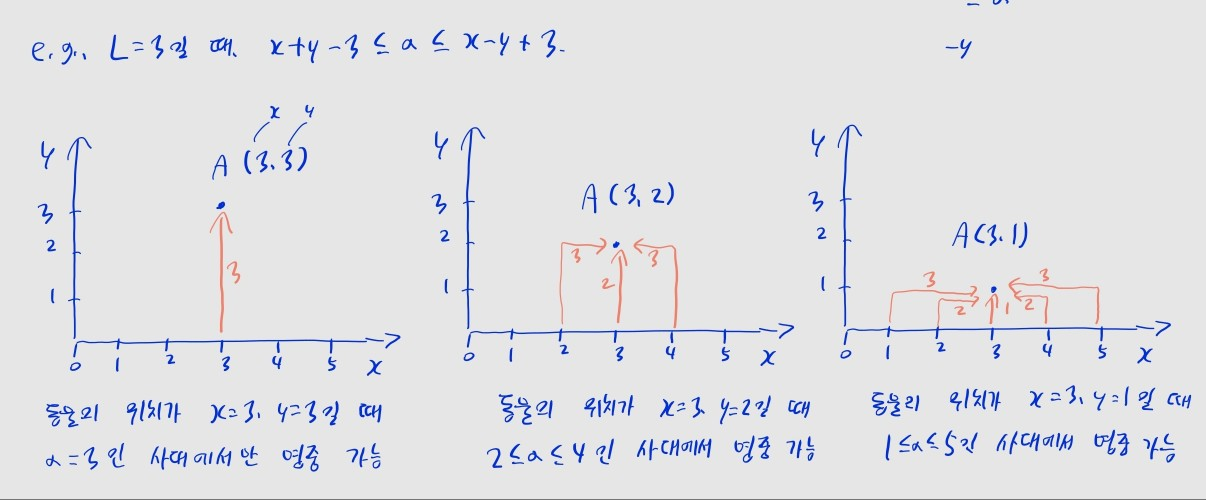 -y
e.g., L=3일 때. x+y-3≤a≤x-y+3.
x y
A (3.3)
y
3
2
1
3
0 1 2 3 4 5 x
동물의 위치가 x=3. y=3일 때
a=3인 사대에서만 명중 가능
A(3,2)
y
3
2
1
3 2 3
0 1 2 3 4 5 x
동물의 위치가 x=3. y=2일 때
2≤a≤4인 사대에서 명중 가능
A(3.1)
y
3
2
1
3 2 1 2 3
0 1 2 3 4 5 x
동물의 위치가 x=3, y=1일 때
1≤a≤5인 사대에서 명중 가능